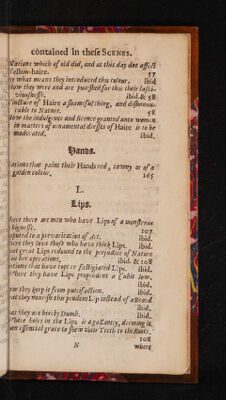 contained in these SCENES.
Nations which of old did, and at this day doe affect
Yellow-haire. 57
by what means they introduced this colour. ibid
how they were and are punished for this their lasci-
viousnesse. ibid. & 58
Tincture of Haire a shamefull thing, and dishonou-
rable to Nature. 58
How the indulgence and licence granted unto women
in matters of ornamental dresses of Haire is to be
moderated. ibid.
Hands.
Nations that paint their Hands red, tawny or of a
golden colour, 165
L.
Lips.
There there are men who have Lips of a monstrous
bignesse. 107
imputed to a prevarication of Art. ibid.
where they love those who have thick Lips. ibid.
that great Lips redound to the prejudice of Nature
in her operations, ibid. & 108
Nations that have topt or fastigiated Lips. ibid.
Where they have Lips prependent a Cubit low.
ibid.
how they keep it from putrifaction. ibid.
that they nourish this pendent Lip instead of a Beard
ibid.
that they are hereby Dumb. ibid.
Where holes in the Lips is a gallantry, deeming it
an essential grace to shew their Teeth to the Roots.
108
N where